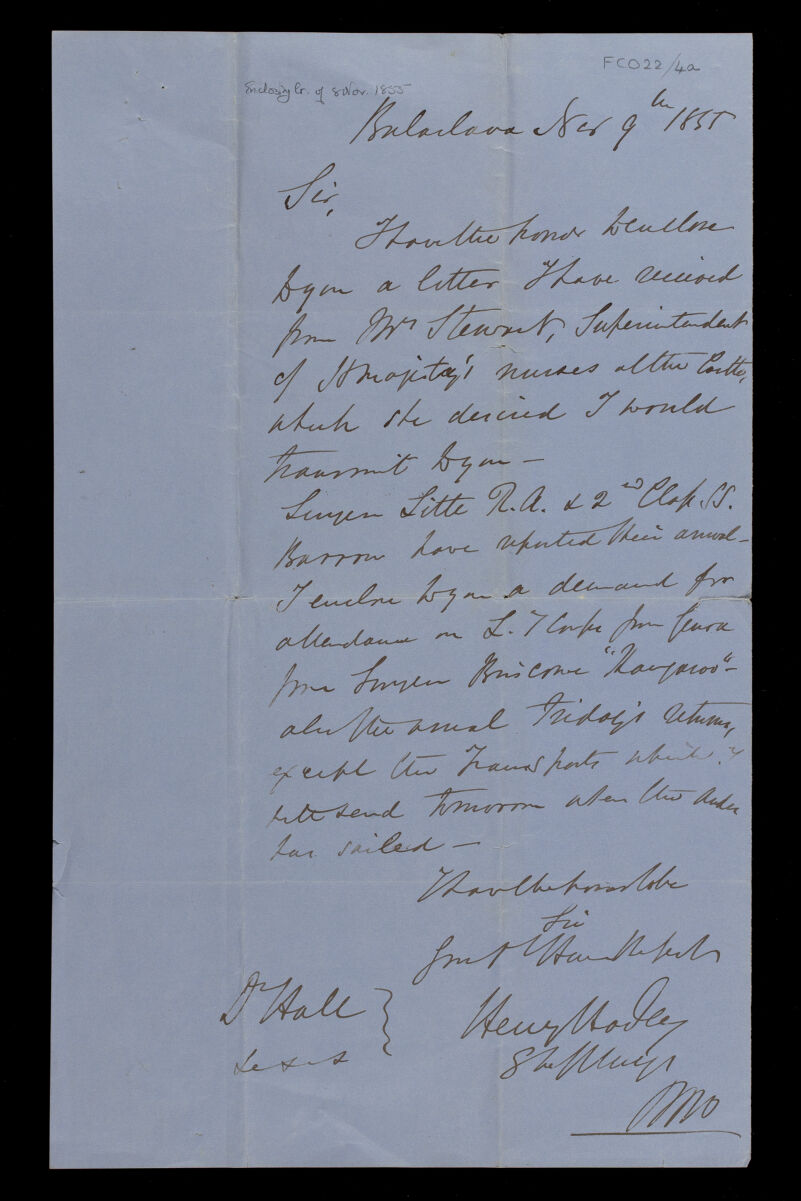 FCO22/4a
Enclosing Lr. of 8 Nov. 1855
Balaclava Nov 9th 1855
Sir,
I have the honor to enclose
to you a letter I have received
from Mrs Stewart, Superintendent
of H Majesty's nurses at the Castle,
which she desired I would
transmit to you —
Surgeon Litte R.A. & 2nd Class SS.
Barrow have reported their arrival —
I enclose to you a demand for
attendance on L. T Corps from
from Surgeon Briscowe "Kangaroo" —
also the usual Friday's returns,
except the Transports which I
will send tomorrow when the
has sailed —
I have the honor to be
Sir
Your Obt Humble Servt
Dr Hall
&c &c &c
Henry Hadley
Staff Surgn
PMO